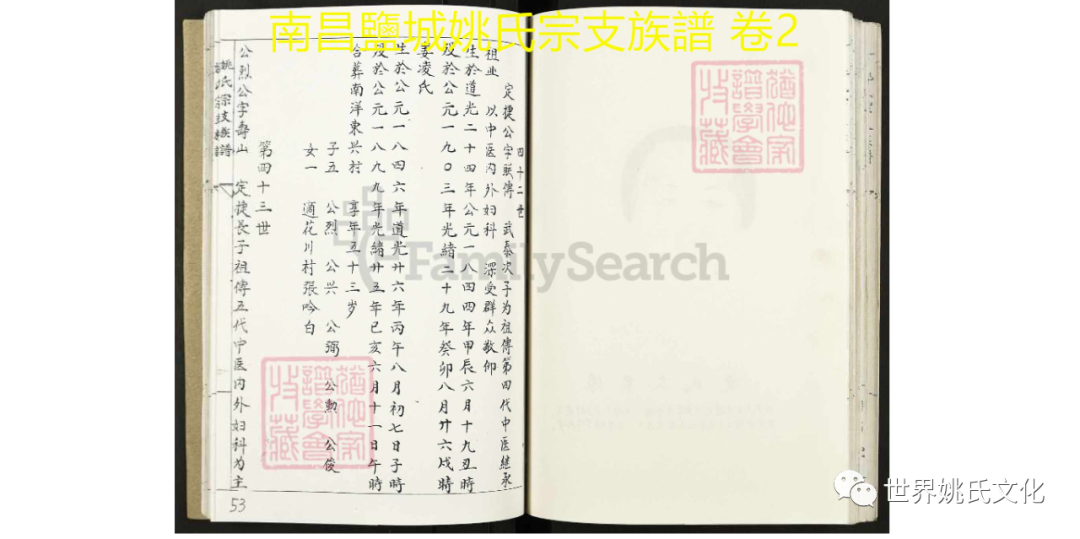 南昌鹽城姚氏宗支族譜 卷2
四十二世
定捷公字联傳 武泰次子为祖傳第四代中医继承
祖业 以中医内外妇科 深受群众敬仰
生於道光二十四年公元一八四四年甲辰六月十九丑時
殁於公元一九〇三年光緒二十九年癸卯八月廿六戌時
姜凌氏
生於公元一八四六年道光廿六年丙午八月初七日子時
殁於公元一八九九年光緒廿五年已亥六月十一日午時
合葬南洋東兴村 享年五十三岁
子五 公烈 公兴 公弼 公勳 公俊
女一 適花川村張吟白
第四十三世
公烈公字壽山 定捷長子祖傳五代中医内外妇科为主
姚氏宗支族譜
53
FamilySearch
猶他家譜學會收藏
猶他家譜學會收藏
世界姚氏文化